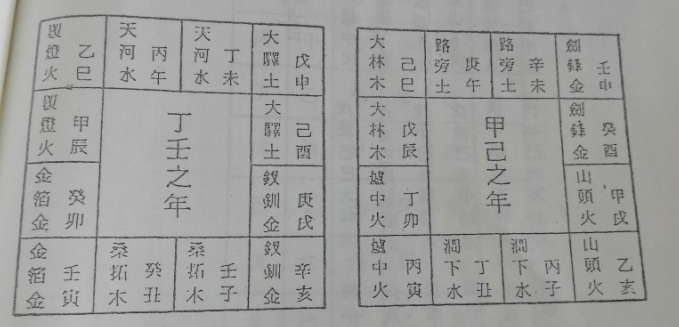 壬申 劍鋒金
辛未 路旁土
庚午 路旁土
己巳 大林木
癸酉 劍鋒金
甲己之年
戊辰 大林木
甲戌 山頭火
丁卯 爐中火
乙亥 山頭火
丙子 澗下水
丁丑 澗下水
丙寅 爐中火
戊申 大驛土
丁未 天河水
丙午 天河水
乙巳 覆燈火
己酉 大驛土
丁壬之年
甲辰 覆燈火
庚戌 釵釧金
癸卯 金箔金
辛亥 釵釧金
壬子 桑拓木
癸丑 桑拓木
壬寅 金箔金